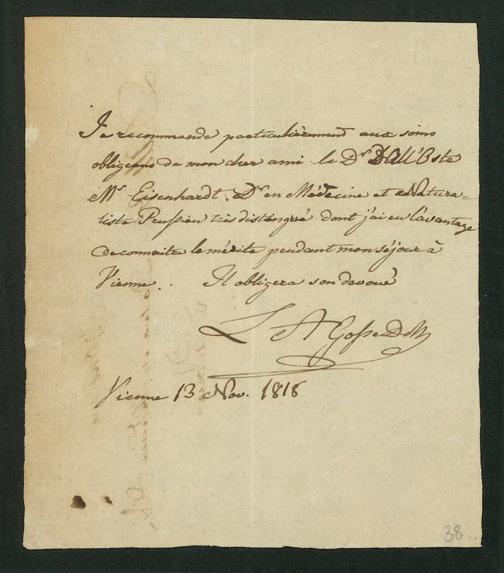 Je recommande particulièrement aux soins
obligeans de mon cher ami le Dr Dall'Oste
Mr Eisenhardt, Dr en Médecine et Natura-
liste Prussien très distingué dont j'ai eu l'avantage
de connaitre le mérite pendant mon séjour à
Vienne. Il obligera son devoué
L A Gosse DM
Vienne 13 Nov. 1818
38